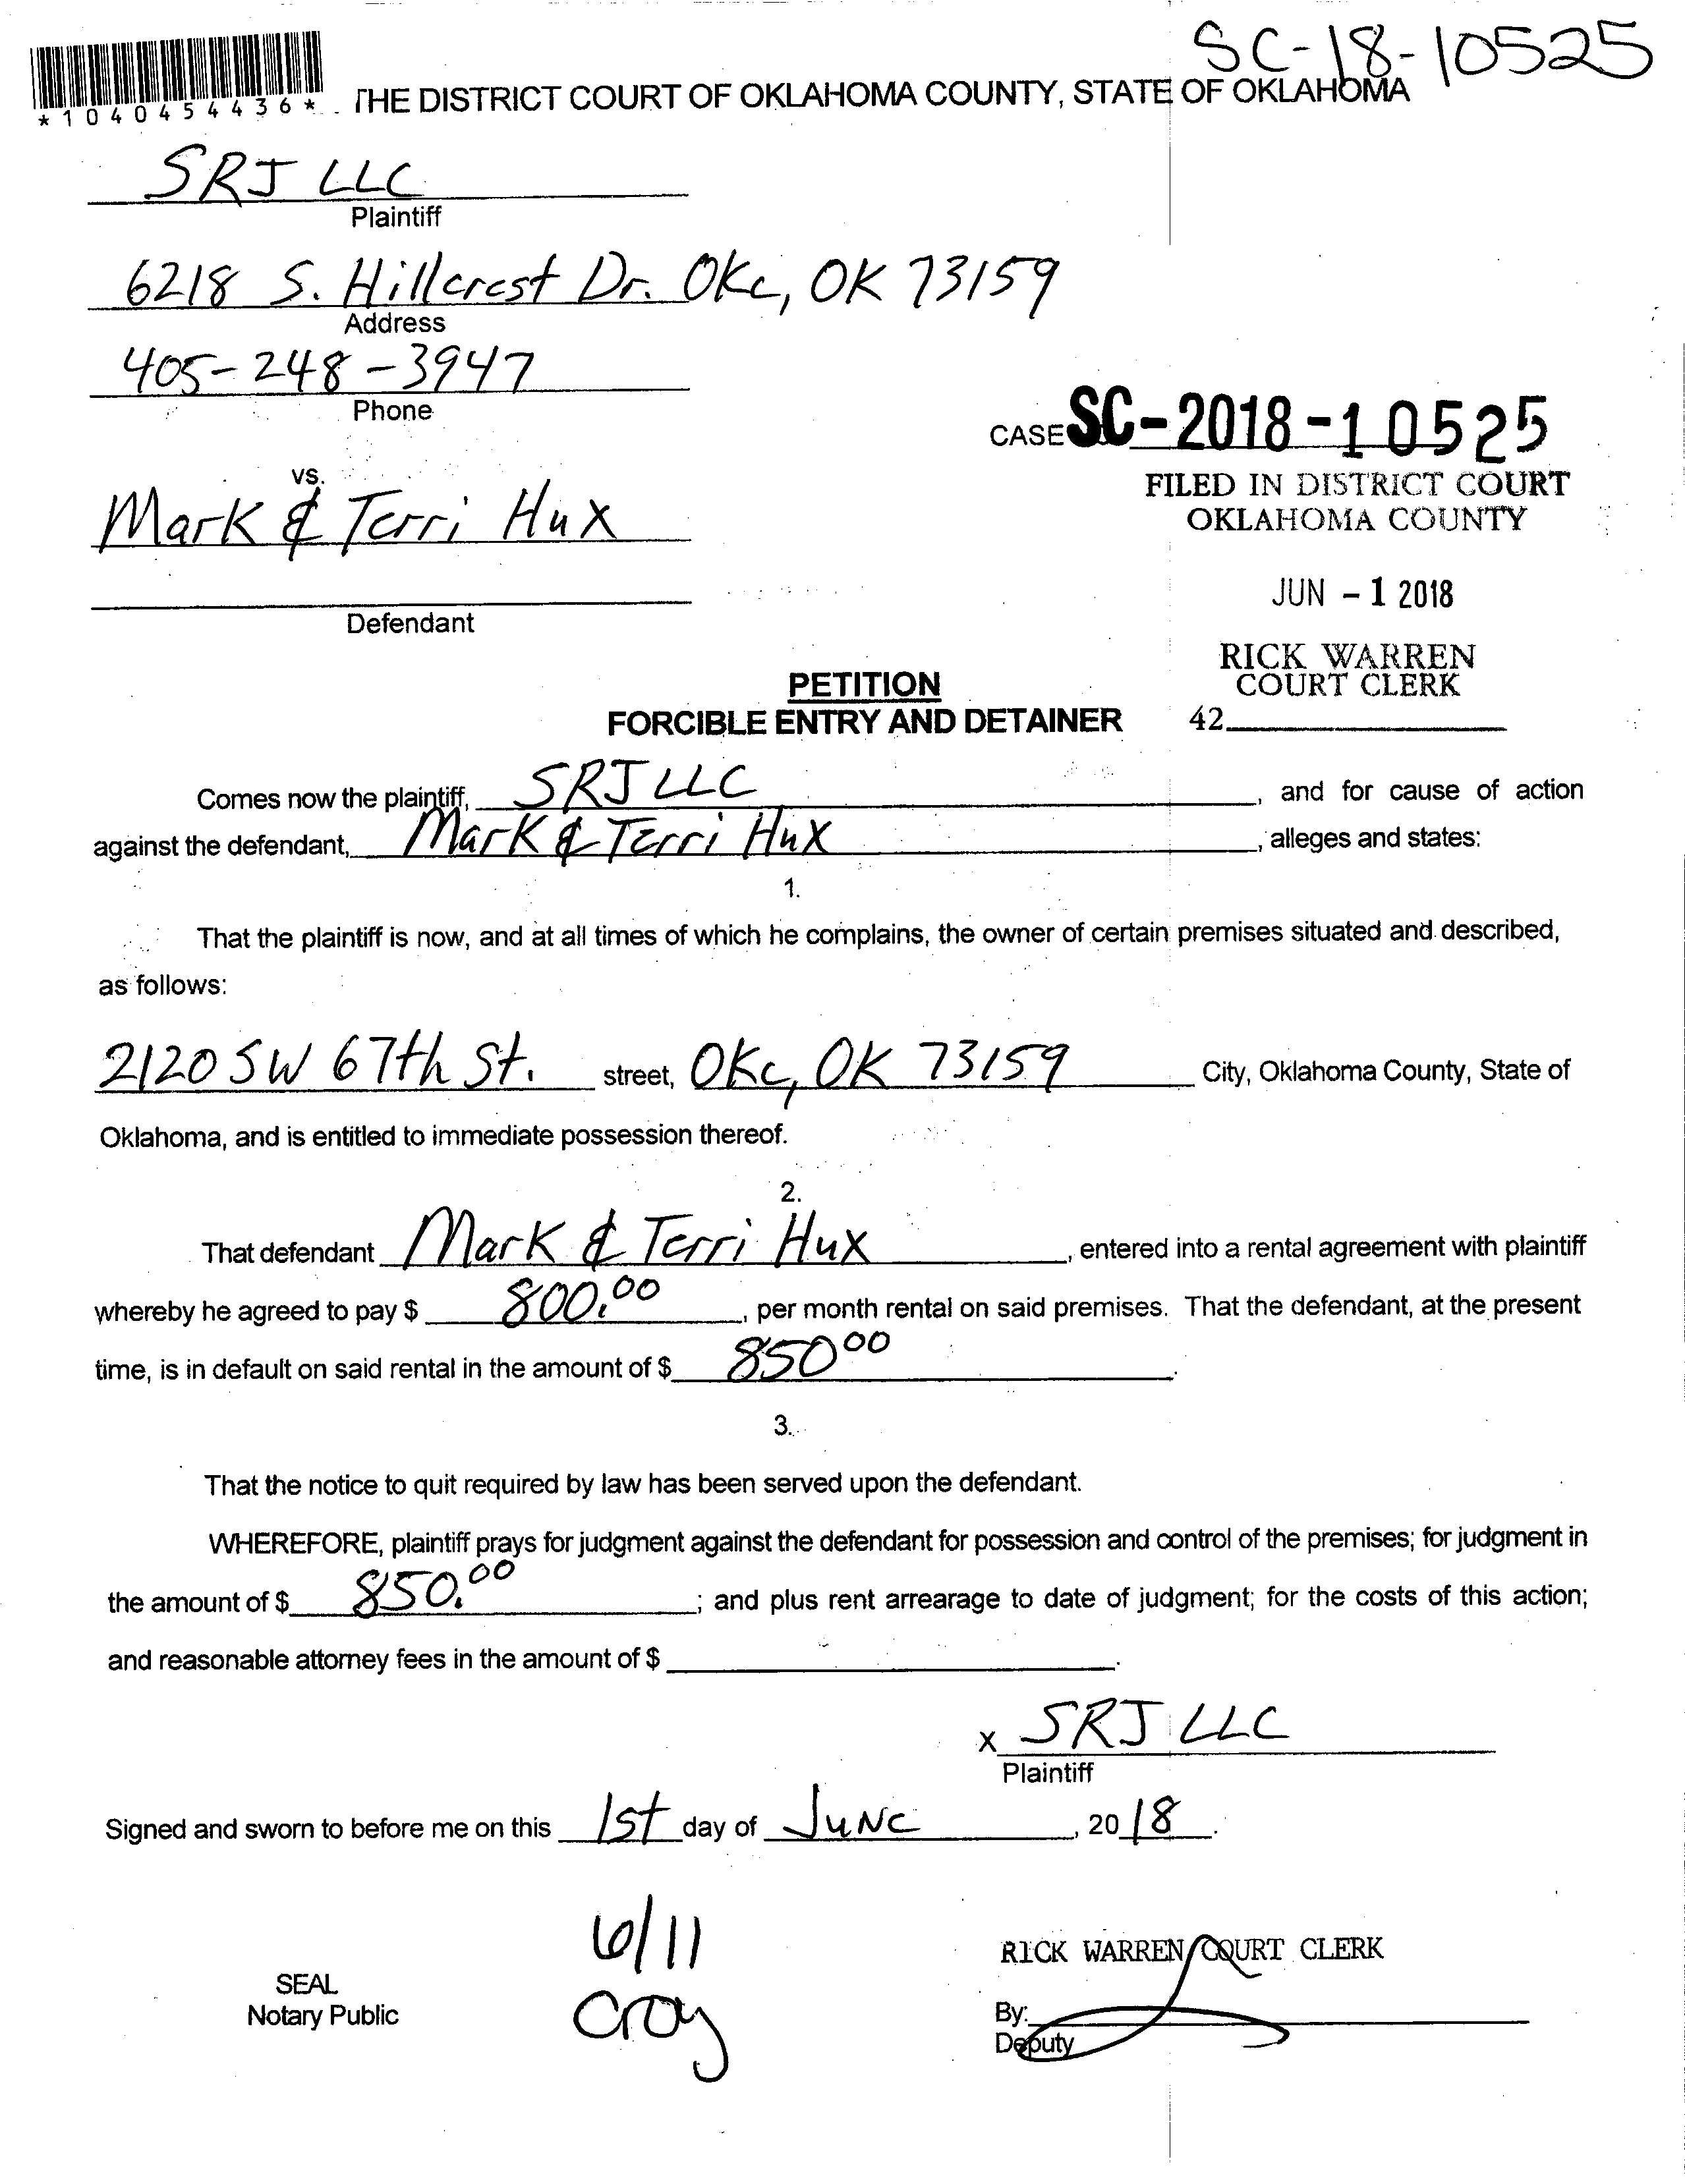 SC-18-10525
*1040454436*
THE DISTRICT COURT OF OKLAHOMA COUNTY, STATE OF OKLAHOMA
SRJ LLC
Plaintiff
6218 S. Hillcrest Dr. OKc, OK 73159
Address
405-248-3947
Phone
CASE SC-2018-10525
FILED IN DISTRICT COURT
OKLAHOMA COUNTY
vs.
Mark & Terri Hux
Defendant
JUN - 1 2018
RICK WARREN
COURT CLERK
42
PETITION
FORCIBLE ENTRY AND DETAINER
Comes now the plaintiff, SRJ LLC, and for cause of action
against the defendant, Mark & Terri Hux, alleges and states:
1.
That the plaintiff is now, and at all times of which he complains, the owner of certain premises situated and described,
as follows:
2120 SW 67th St. street, OKc, OK 73159 City, Oklahoma County, State of
Oklahoma, and is entitled to immediate possession thereof.
2.
That defendant Mark & Terri Hux, entered into a rental agreement with plaintiff
whereby he agreed to pay $ 800.00, per month rental on said premises. That the defendant, at the present
time, is in default on said rental in the amount of $ 850 00.
3.
That the notice to quit required by law has been served upon the defendant.
WHEREFORE, plaintiff prays for judgment against the defendant for possession and control of the premises; for judgment in
the amount of $ 850.00; and plus rent arrearage to date of judgment; for the costs of this action;
and reasonable attorney fees in the amount of $ .
X SRJ LLC
Plaintiff
Signed and sworn to before me on this 1st day of June, 2018.
6/11
Croy
SEAL
Notary Public
RICK WARREN COURT CLERK
By:
Deputy